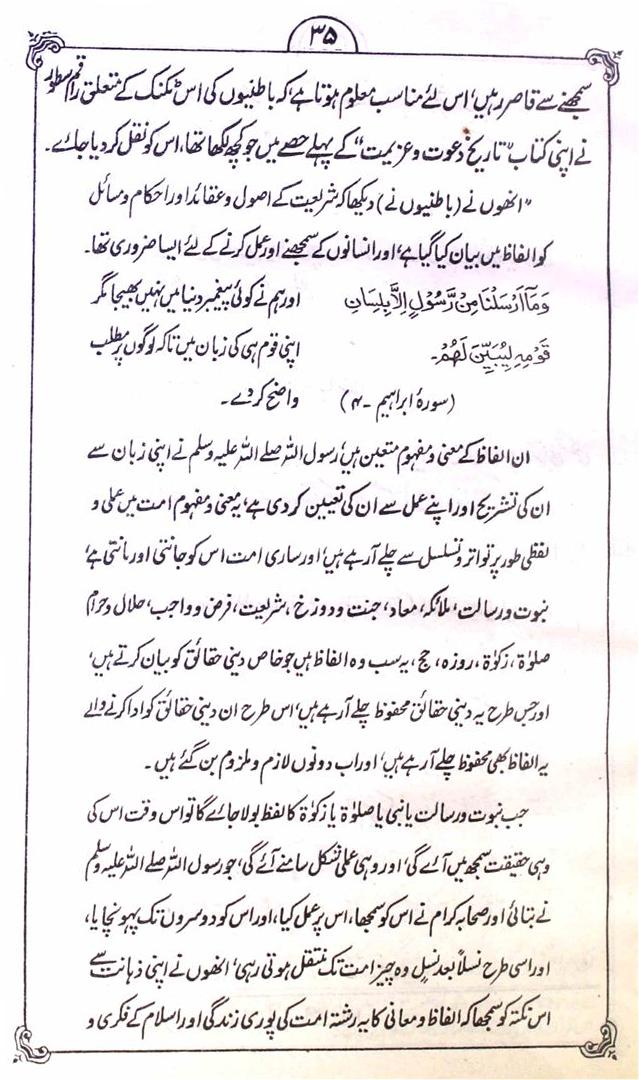 ۳۵
سمجھنے سے قاصر رہیں، اس لئے مناسب معلوم ہوتا ہے، کہ باطنیوں کی اس ٹکنک کے متعلق راقم سطور
نے اپنی کتاب "تاریخ دعوت و عزیمت" کے پہلے حصے میں جو کچھ لکھا تھا، اس کو نقل کر دیا جائے۔
"انھوں نے (باطنیوں نے) دیکھا کہ شریعت کے اصول و عقائد اور احکام و مسائل
کو الفاظ میں بیان کیا گیا ہے، اور انسانوں کے سمجھنے اور عمل کرنے کے لئے ایسا ضروری تھا۔
وَمَآ اَرْسَلْنَا مِنْ رَّسُوْلٍ اِلَّا بِلِسَانِ اور ہم نے کوئی پیغمبر دنیا میں نہیں بھیجا مگر
قَوْمِهٖ لِيُبَيِّنَ لَهُمْ۔ اپنی قوم ہی کی زبان میں تاکہ لوگوں پر مطلب
(سورۂ ابراہیم ۔۴) واضح کر دے۔
ان الفاظ کے معنی و مفہوم متعین ہیں، رسول اللہ صلے اللہ علیہ وسلم نے اپنی زبان سے
ان کی تشریح اور اپنے عمل سے ان کی تعیین کر دی ہے، یہ معنی و مفہوم امت میں عملی و
لفظی طور پر تواتر و تسلسل سے چلے آرہے ہیں، اور ساری امت اس کو جانتی اور مانتی ہے،
نبوت و رسالت، ملائکہ، معاد، جنت و دوزخ، شریعت، فرض و واجب، حلال و حرام
صلوٰۃ، زکوٰۃ، روزہ، حج، یہ سب وہ الفاظ ہیں جو خاص دینی حقائق کو بیان کرتے ہیں،
اور جس طرح یہ دینی حقائق محفوظ چلے آرہے ہیں، اس طرح ان دینی حقائق کو ادا کرنے والے
یہ الفاظ بھی محفوظ چلے آرہے ہیں، اور اب دونوں لازم و ملزوم بن گئے ہیں۔
جب نبوت و رسالت یا نبی یا صلوٰۃ یا زکوٰۃ کا لفظ بولا جائے گا تو اس وقت اس کی
وہی حقیقت سمجھ میں آئے گی، اور وہی عملی شکل سامنے آئے گی، جو رسول اللہ صلے اللہ علیہ وسلم
نے بتائی اور صحابہ کرام نے اس کو سمجھا، اس پر عمل کیا، اور اس کو دوسروں تک پہونچایا،
اور اسی طرح نسلاً بعد نسلٍ وہ چیز امت تک منتقل ہوتی رہی، انھوں نے اپنی ذہانت سے
اس نکتہ کو سمجھا کہ الفاظ و معانی کا یہ رشتہ امت کی پوری زندگی اور اسلام کے فکری و